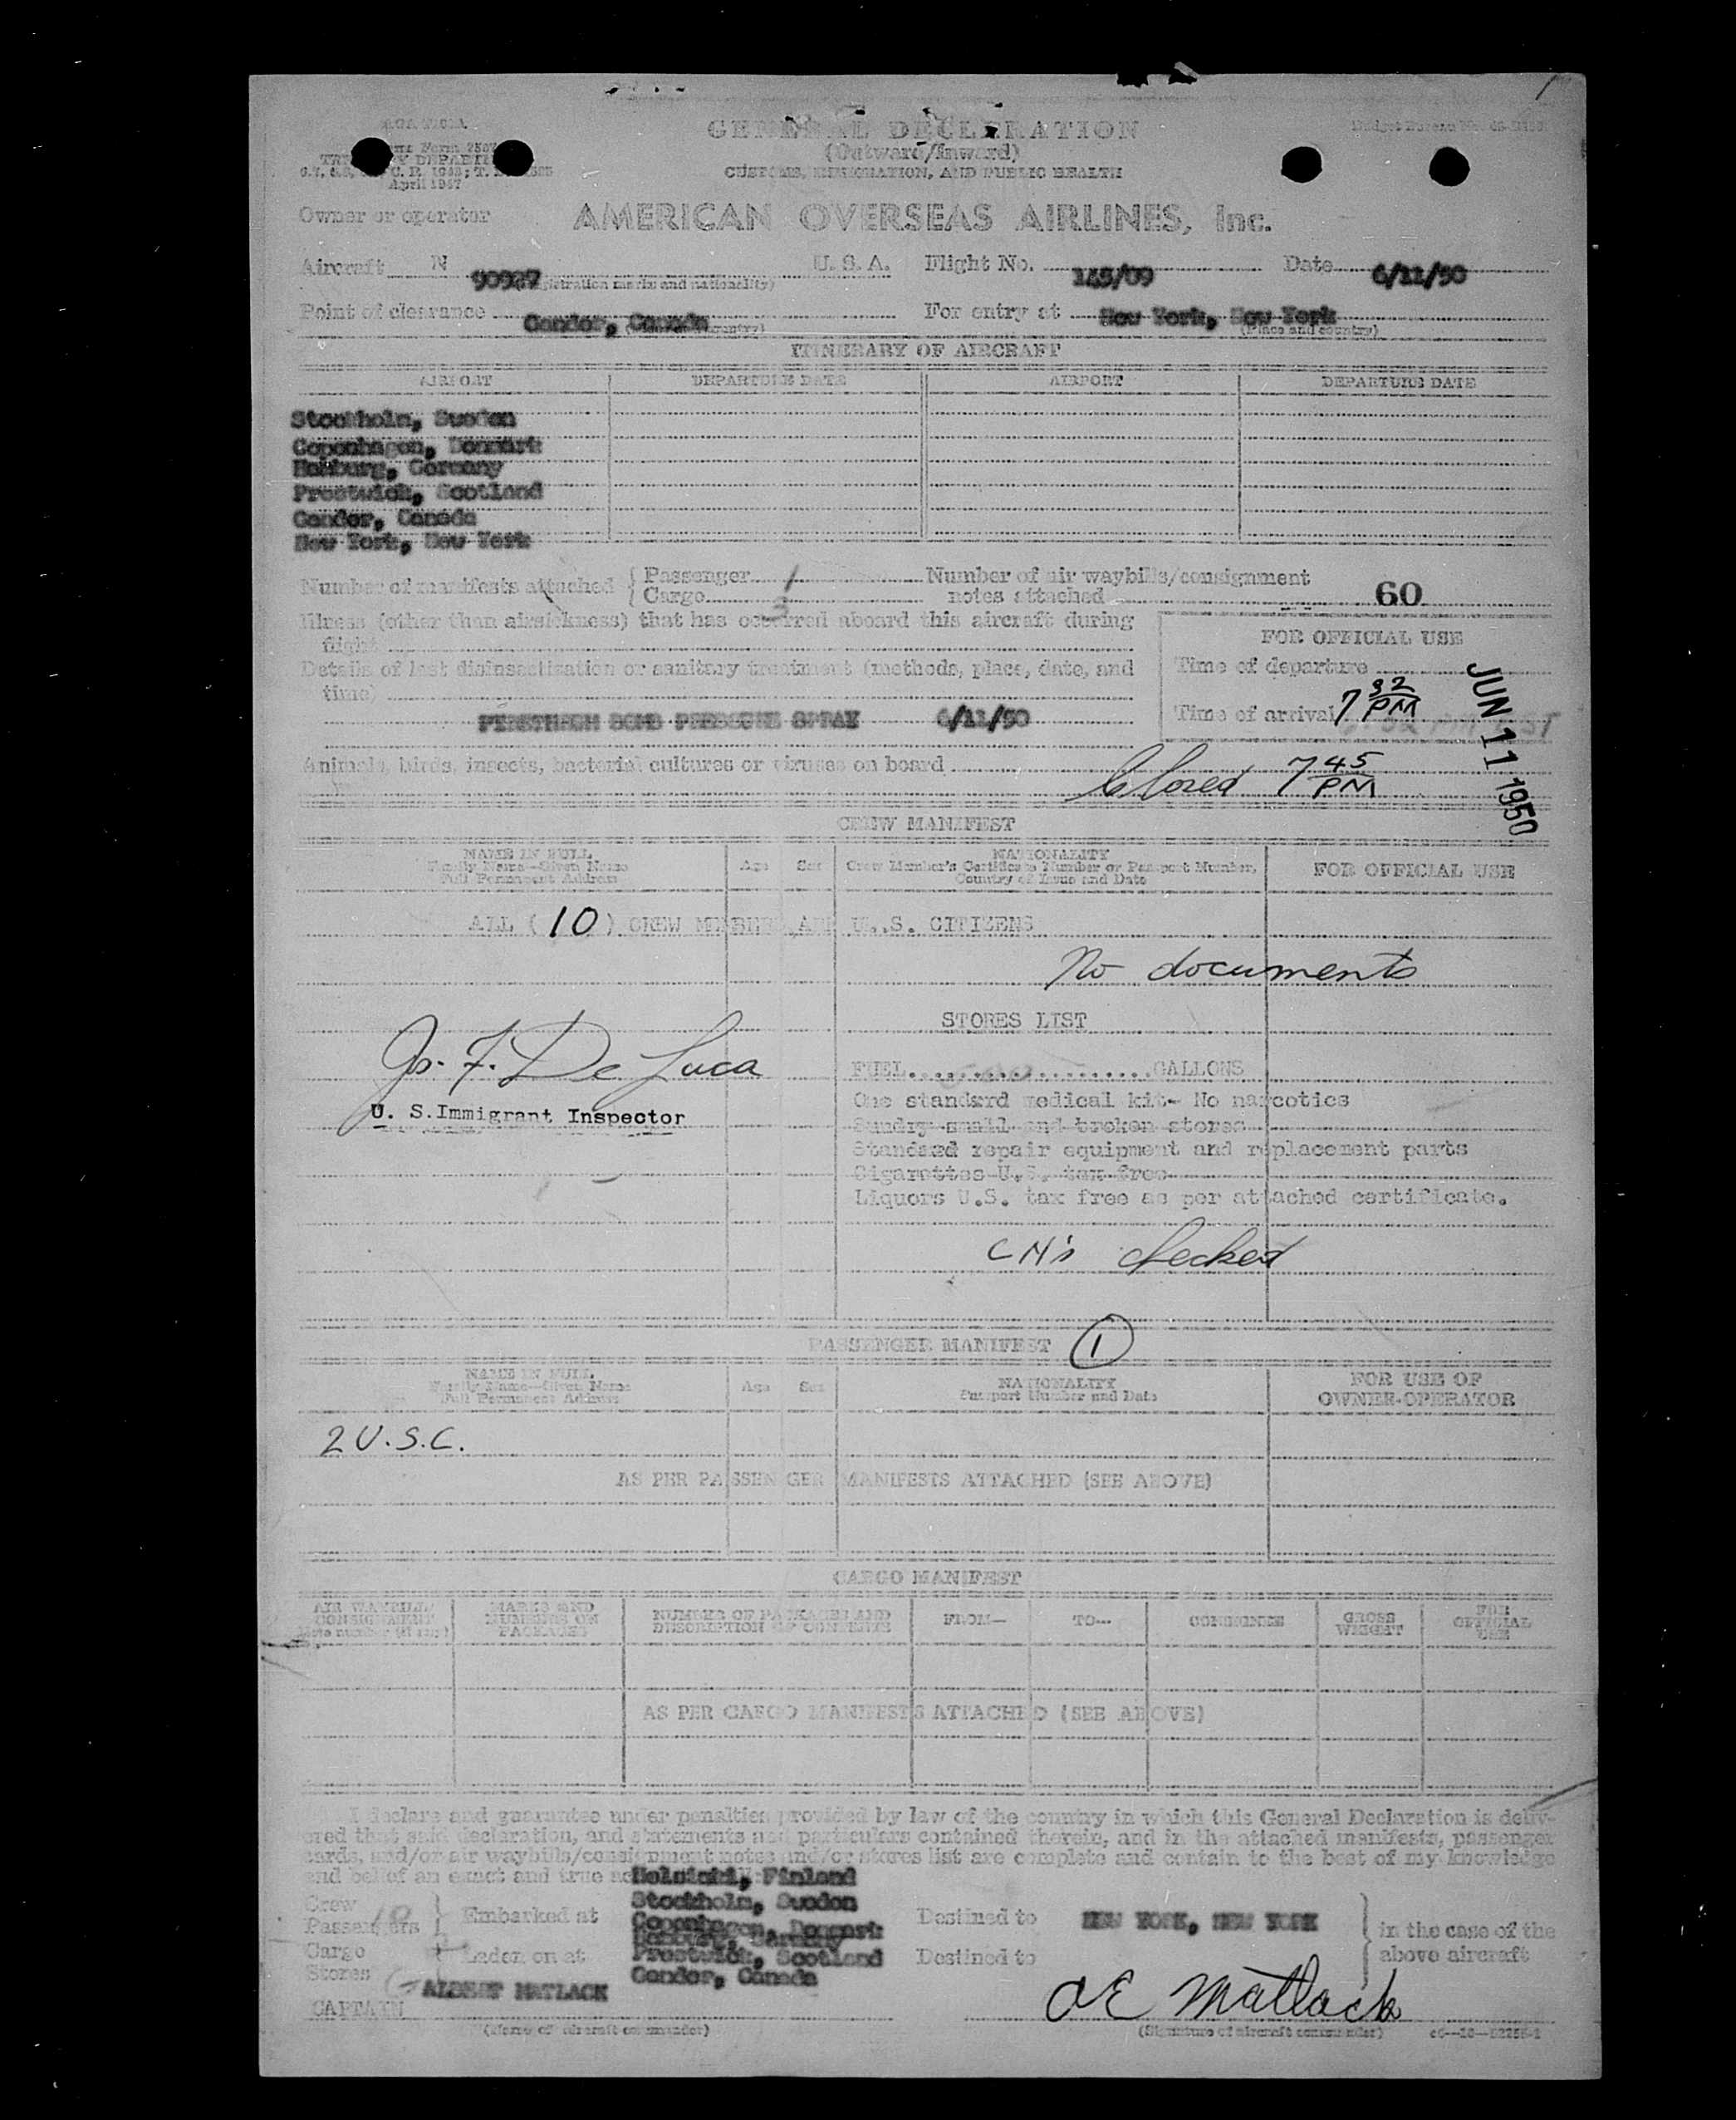 GENERAL DECLARATION
(Outward/Inward)
CUSTOMS, IMMIGRATION, AND PUBLIC HEALTH
April 1947
Owner or operator AMERICAN OVERSEAS AIRLINES, Inc.
Aircraft N 90927 U. S. A. Flight No. 145/09 Date 6/11/50
(Registration marks and nationality)
Point of clearance Gander, Canada For entry at New York, New York
(Place and country)
ITINERARY OF AIRCRAFT
AIRPORT DEPARTURE DATE AIRPORT DEPARTURE DATE
Stockholm, Sweden
Copenhagen, Denmark
Hamburg, Germany
Prestwick, Scotland
Gander, Canada
New York, New York
Number of manifests attached { Passenger 1 Number of air waybills/consignment
Cargo 3 notes attached 60
Illness (other than airsickness) that has occurred aboard this aircraft during
flight
FOR OFFICIAL USE
Details of last disinsectization or sanitary treatment (methods, place, date, and
time)
Time of departure
PYRETHRUM BOMB PRESSURE SPRAY 6/11/50
Time of arrival 7 32 PM
JUN 11 1950
Animals, birds, insects, bacterial cultures or viruses on board
Closed 7 45 PM
CREW MANIFEST
NAME IN FULL
Family Name—Given Name
Full Permanent Address
Age Sex
NATIONALITY
Crew Member's Certificate Number or Passport Number,
Country of Issue and Date
FOR OFFICIAL USE
ALL ( 10 ) CREW MEMBERS ARE U.S. CITIZENS
No documents
STORES LIST
Jos. F. De Luca
U. S. Immigrant Inspector
FUEL GALLONS
One standard medical kit- No narcotics
Sundry small and broken stores
Standard repair equipment and replacement parts
Cigarettes U.S. tax free
Liquors U.S. tax free as per attached certificate.
checked
PASSENGER MANIFEST 1
NAME IN FULL
Family Name—Given Name
Full Permanent Address
Age Sex
NATIONALITY
Passport Number and Date
FOR USE OF
OWNER-OPERATOR
2 U.S.C.
AS PER PASSENGER MANIFESTS ATTACHED (SEE ABOVE)
CARGO MANIFEST
AIR WAYBILL/
CONSIGNMENT
Note number (if any)
MARKS AND
NUMBERS ON
PACKAGES
NUMBER OF PACKAGES AND
DESCRIPTION OF CONTENTS
FROM—
TO—
CONSIGNEE
GROSS
WEIGHT
FOR
OFFICIAL
USE
AS PER CARGO MANIFESTS ATTACHED (SEE ABOVE)
I declare and guarantee under penalties provided by law of the country in which this General Declaration is deliv-
ered that said declaration, and statements and particulars contained therein, and in the attached manifests, passenger
cards, and/or air waybills/consignment notes and/or stores list are complete and contain to the best of my knowledge
and belief an exact and true
Helsinki, Finland
Stockholm, Sweden
Copenhagen, Denmark
Hamburg, Germany
Prestwick, Scotland
Gander, Canada
Crew
Passengers } Embarked at
Destined to NEW YORK, NEW YORK } in the case of the
Cargo
Stores
Laden on at
Destined to
above aircraft
CAPTAIN ALBERT MATLACK
(Name of aircraft commander)
AE Matlack
(Signature of aircraft commander)